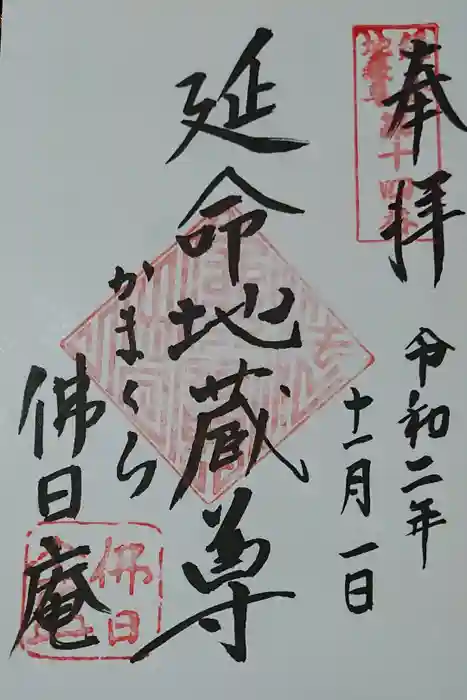 奉拝
令和二年
十一月一日
延命地蔵尊
かまくら
佛日庵
地蔵尊
第十四番
佛日